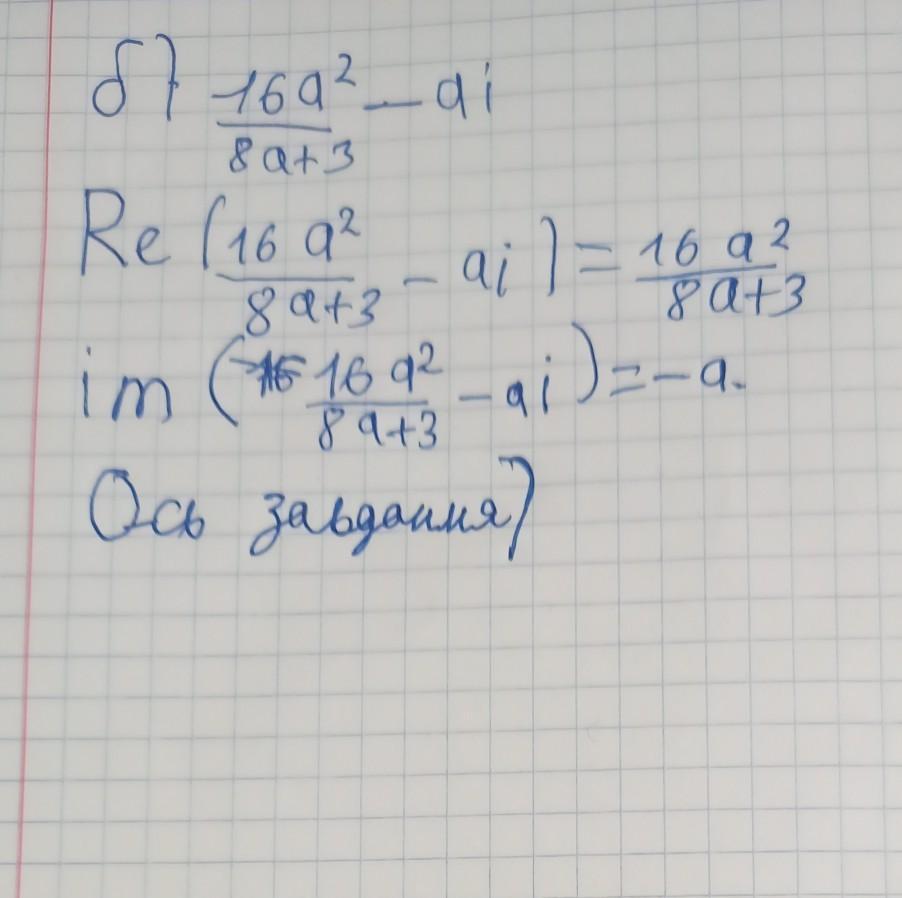 б) 16a²/8a+3 − ai
Re(16a²/8a+3 − ai) = 16a²/8a+3
im(16a²/8a+3 − ai) = −a.
Ось завдання)